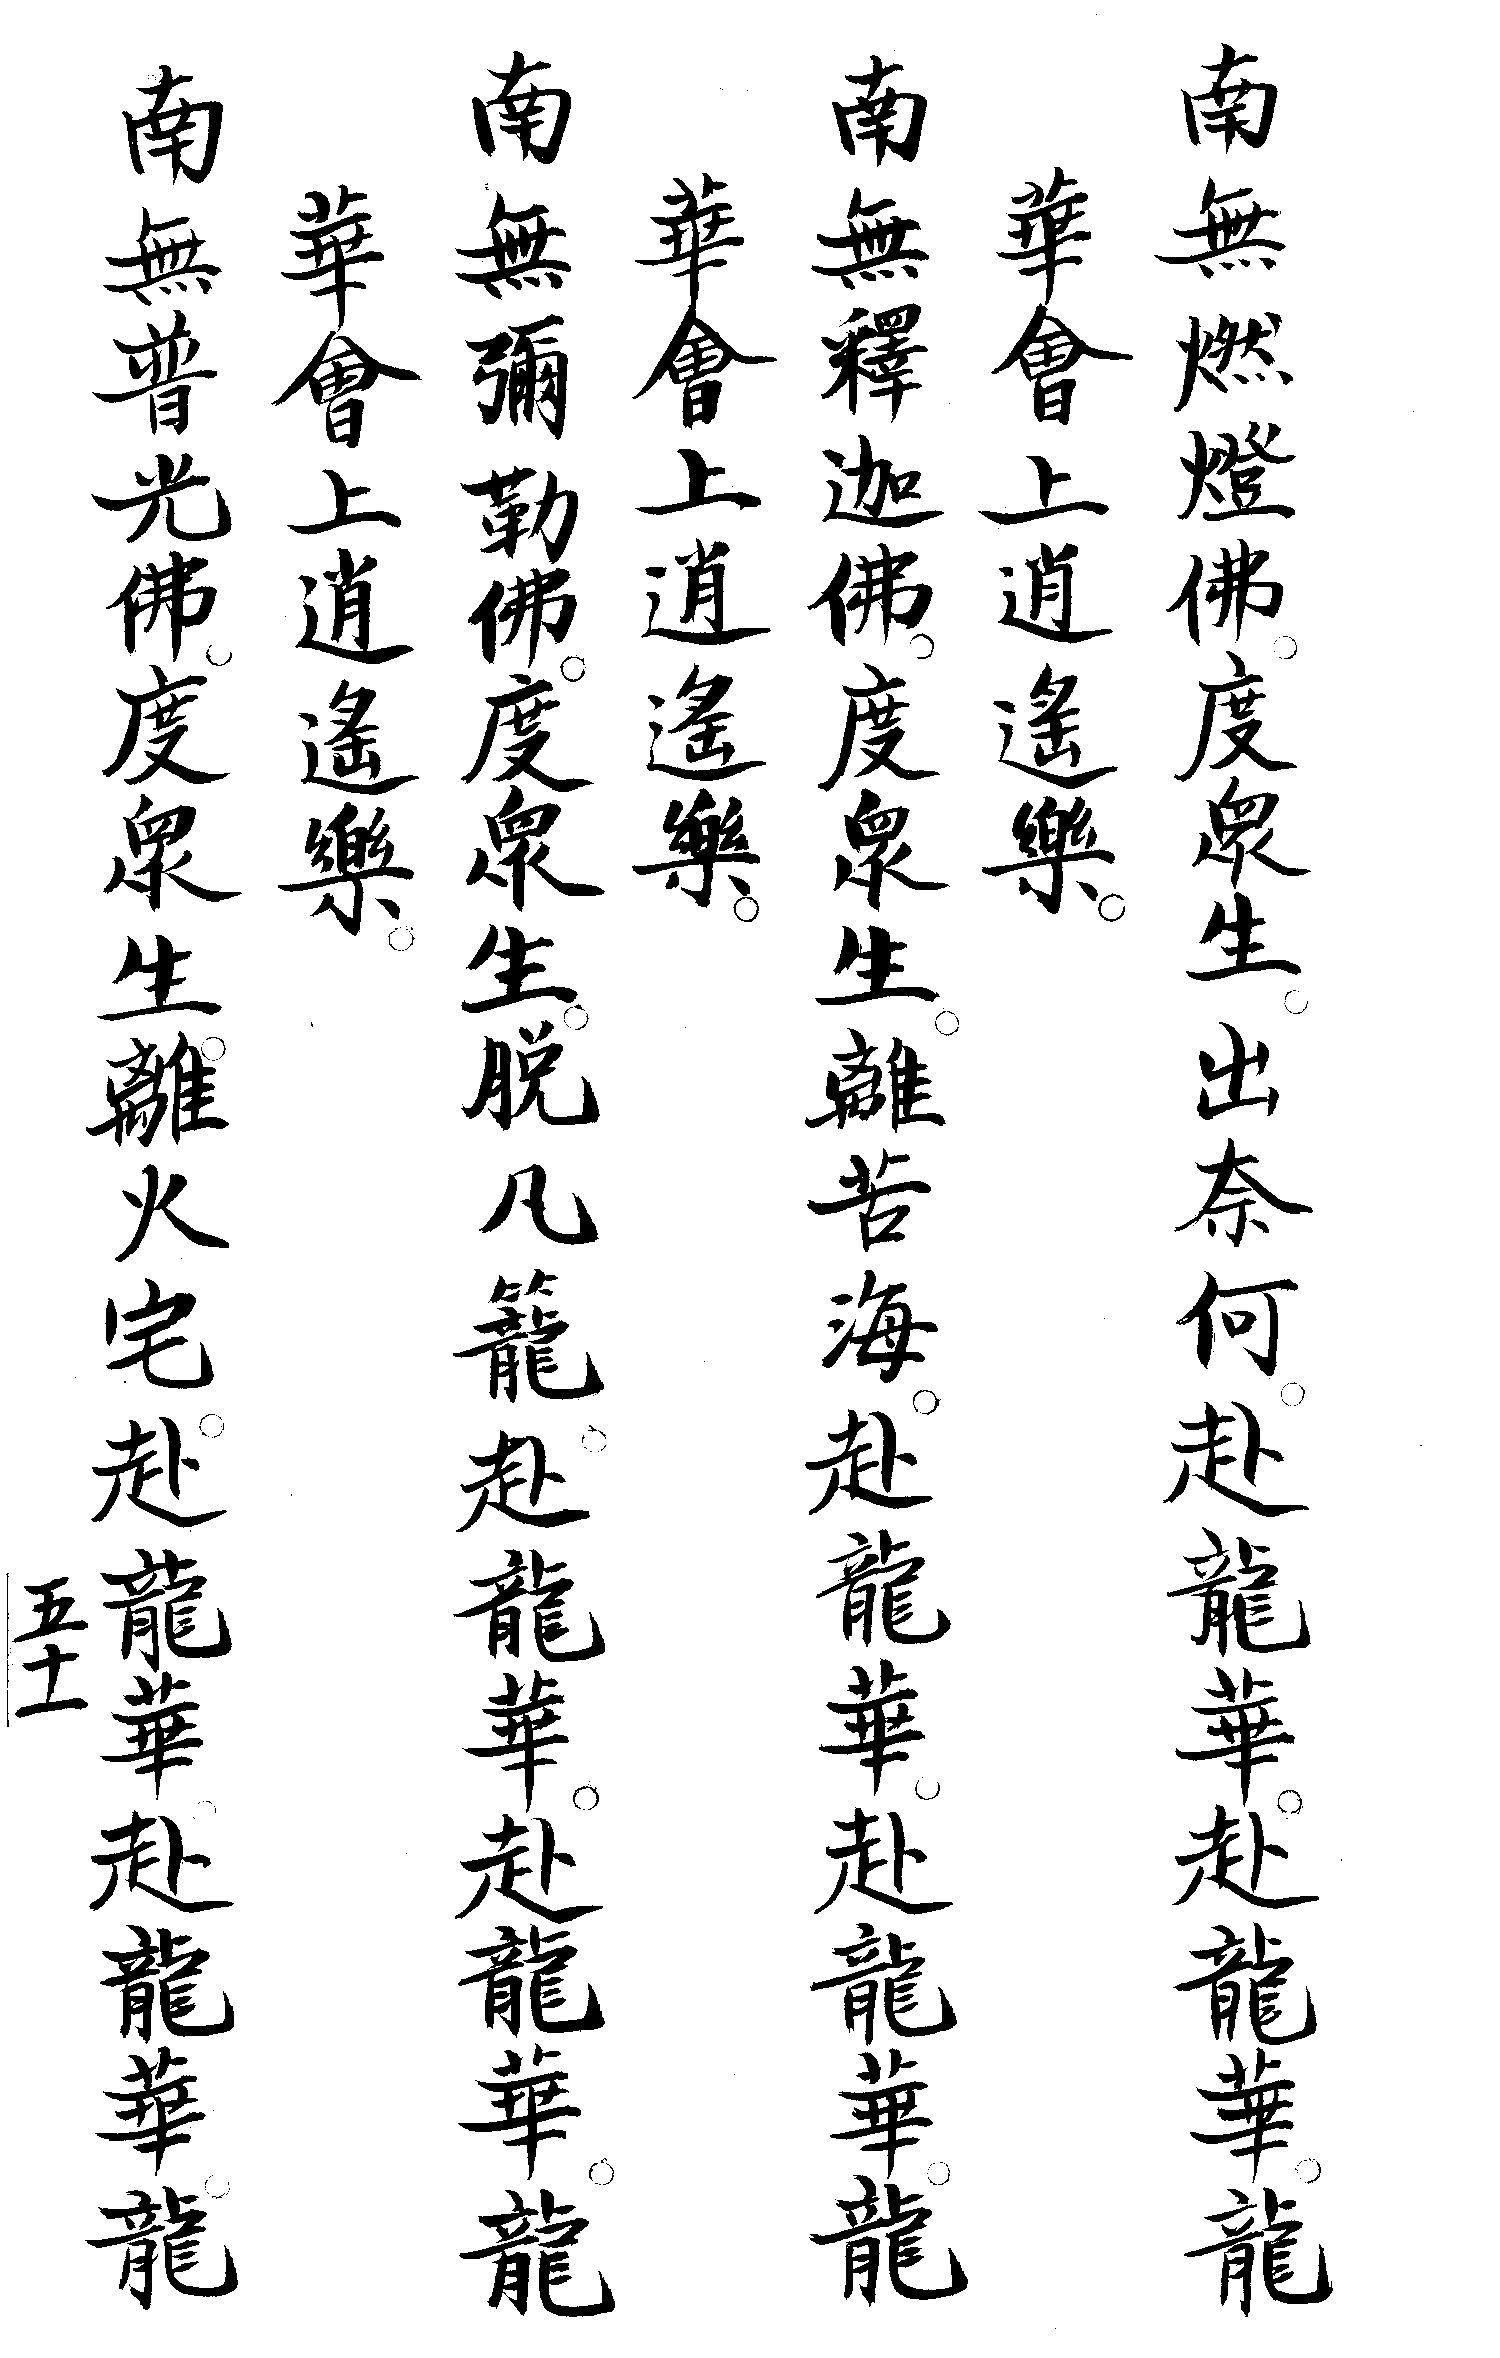 南無燃燈佛。度眾生。出奈何。赴龍華。赴龍華。龍
華會上逍遙樂。
南無釋迦佛。度眾生。離苦海。赴龍華。赴龍華。龍
華會上逍遙樂。
南無彌勒佛。度眾生。脱凡籠。赴龍華。赴龍華。龍
華會上逍遙樂。
南無普光佛。度眾生。離火宅。赴龍華。赴龍華。龍
五十一